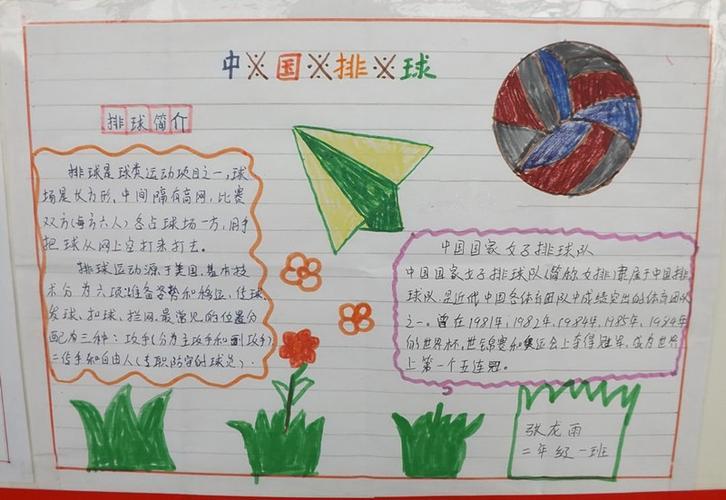 中国排球
排球简介
排球是球类运动项目之一,球
场是长方形,中间隔有高网,比赛
双方(每方六人)各占球场一方,用手
把球从网上空打来打去。
排球运动源于美国,基本技
术分为六项:准备姿势和移位,传球,
发球,扣球,拦网,最常见的位置分
配为三种:攻手(分为主攻手和副攻手)
二传手和自由人(专职防守的球员).
中国国家女子排球队
中国国家女子排球队(简称女排)隶属于中国排
球队,是近代中国各体育团队中成绩突出的体育团队
之一。曾在1981年,1982年,1984年,1985年,1986年
的世界杯,世锦赛和奥运会上夺得冠军,成为世界
上第一个五连冠。
张龙雨
二年级一班